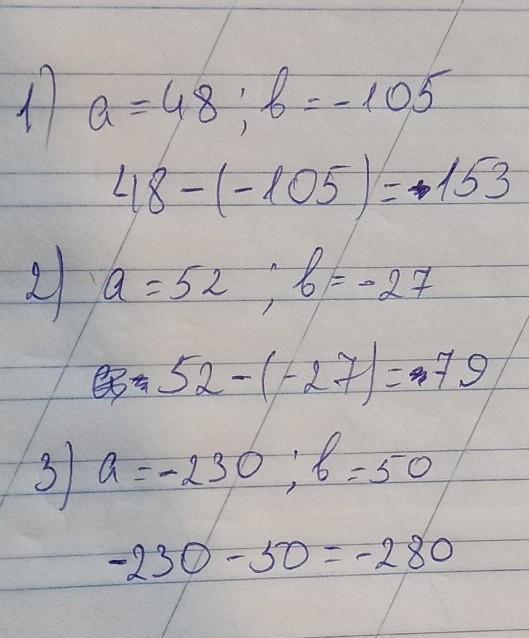 1) a = 48 ; b = -105
48 - (-105) = 153
2) a = 52 ; b = -27
52 - (-27) = 79
3) a = -230 ; b = 50
-230 - 50 = -280